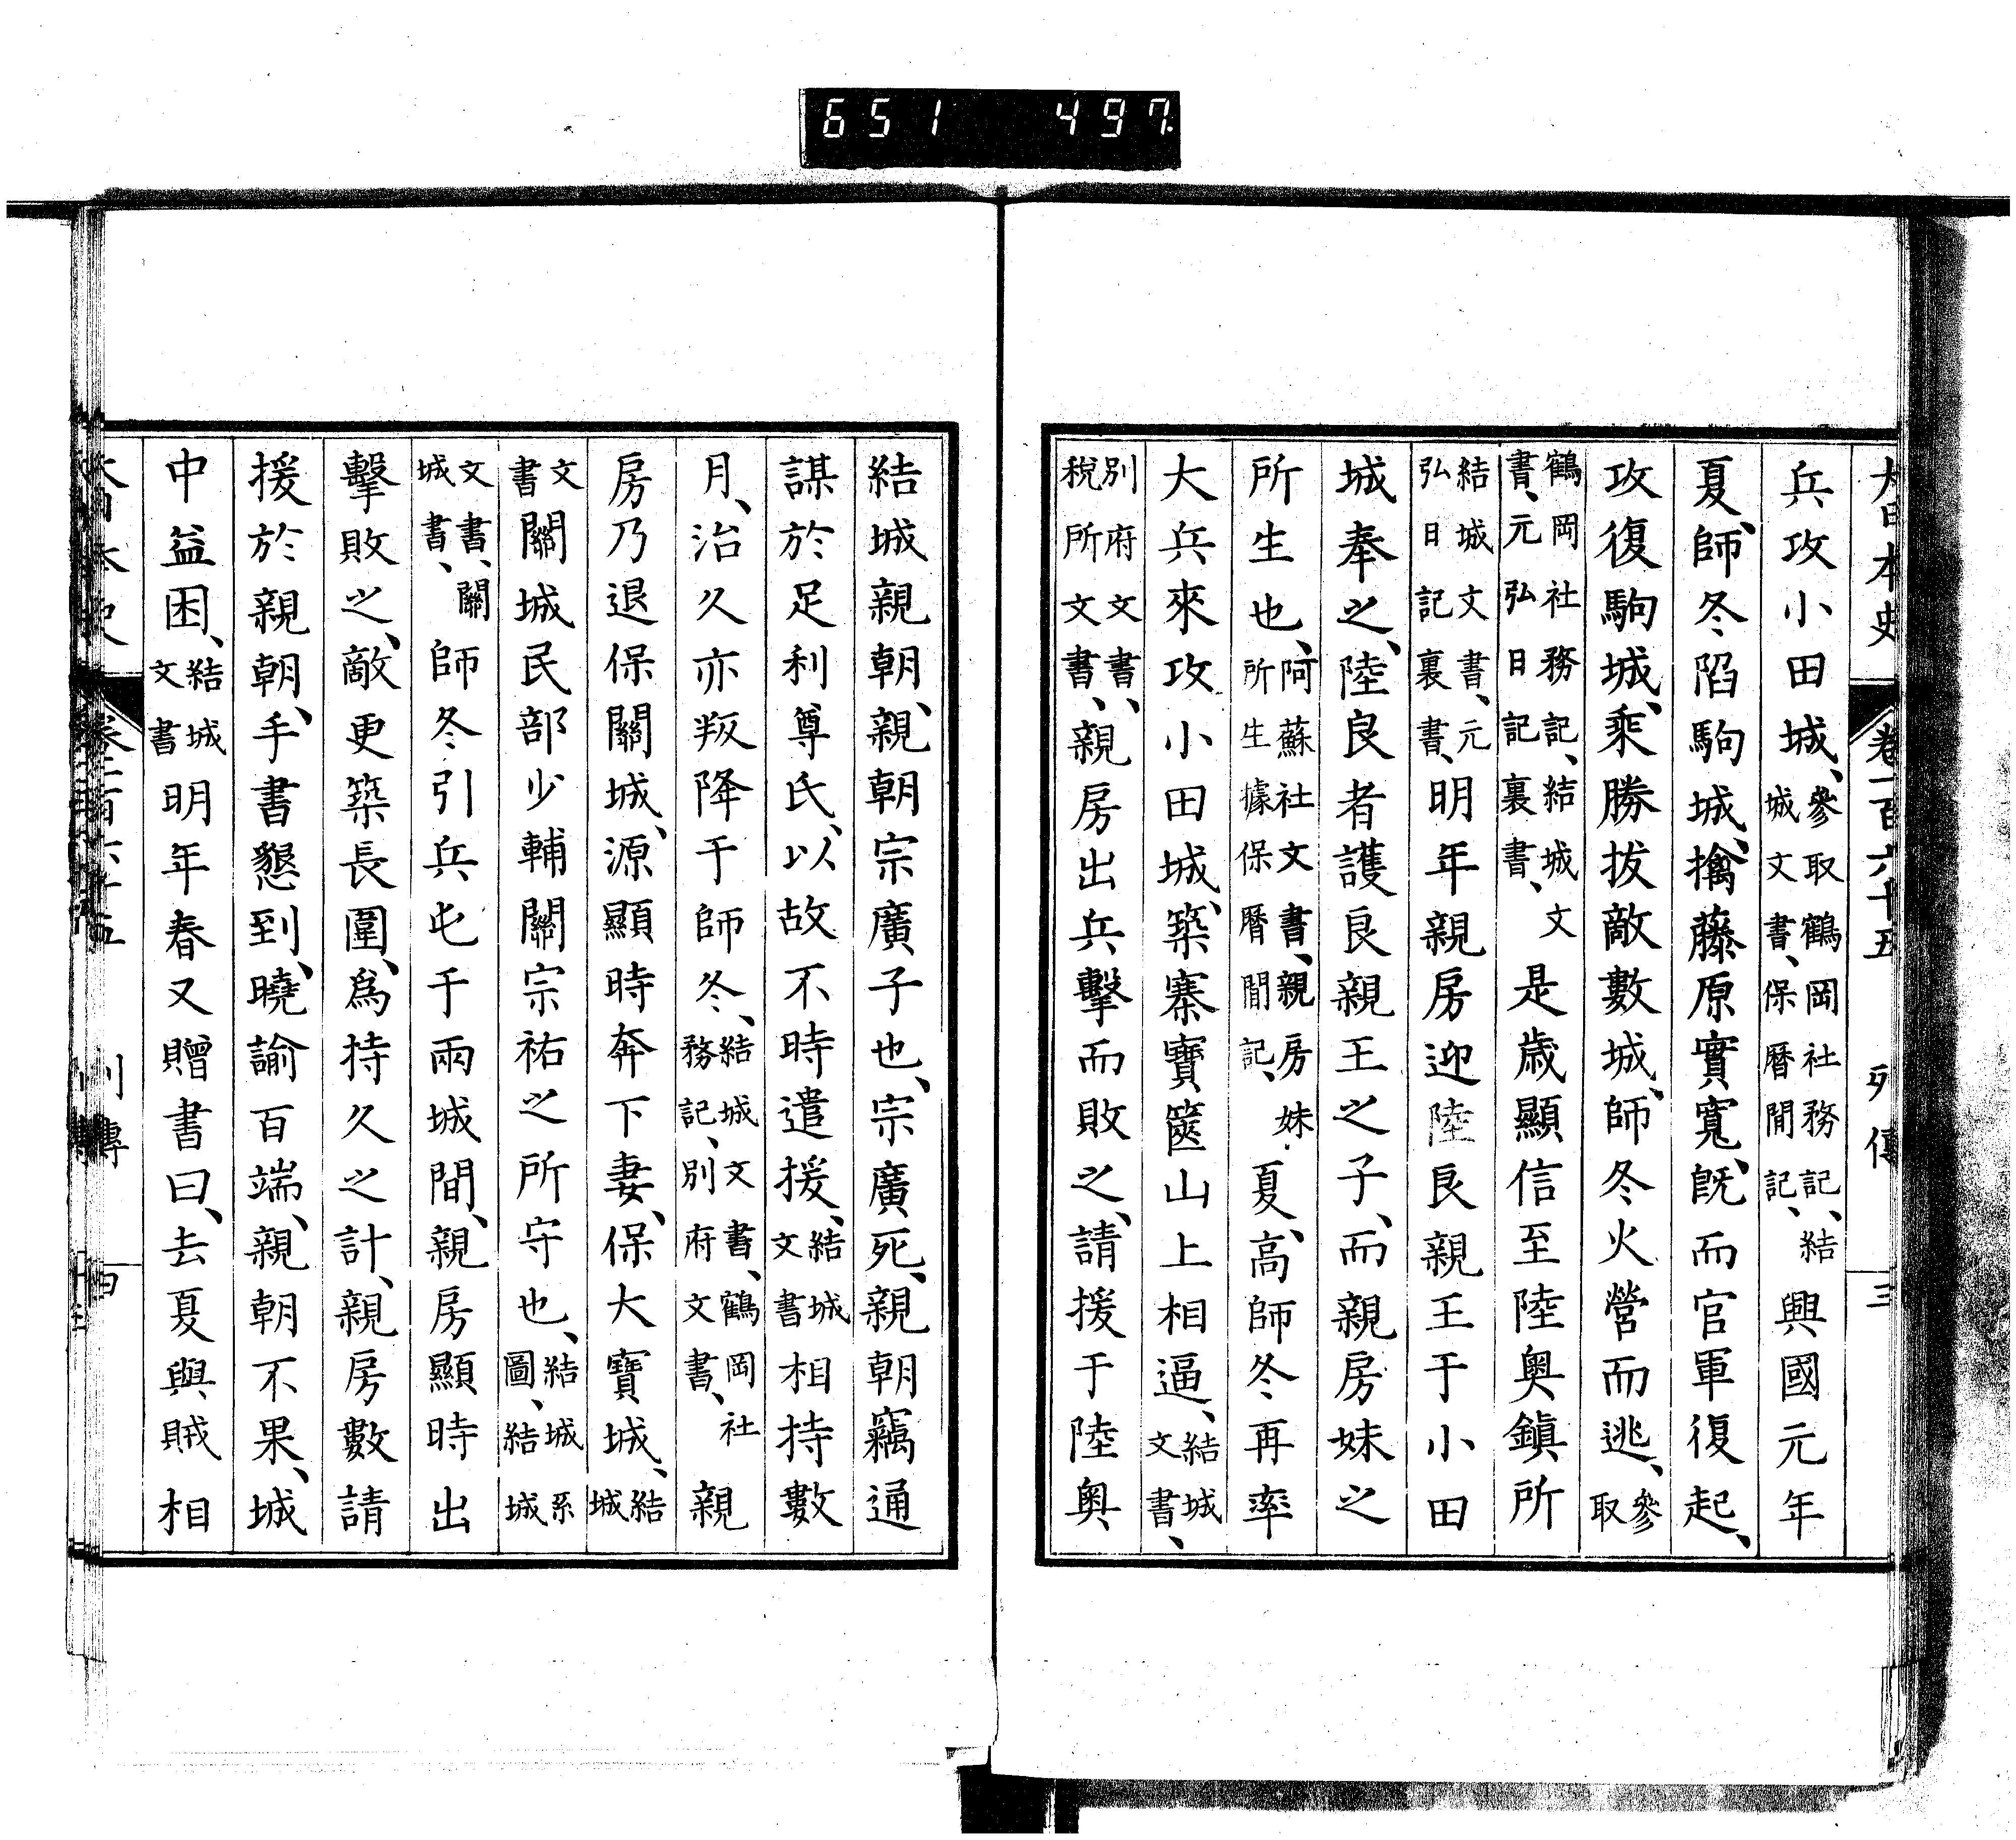 651 497.
大日本史 卷一百六十五 列傳 三
兵攻小田城、參取鶴岡社務記、結城文書、保曆間記、興國元年
夏、師冬陷駒城、擒藤原實寬、旣而官軍復起、
攻復駒城、乘勝拔敵數城、師冬火營而逃、參取
鶴岡社務記、結城文書、元弘日記裏書、是歲顯信至陸奧鎭所
結城文書、元弘日記裏書、明年親房迎陸良親王于小田
城奉之、陸良者護良親王之子、而親房妹之
所生也、阿蘇社文書、親房妹所生據保曆間記、夏、高師冬再率
大兵來攻小田城、築寨寶篋山上相逼、結城文書、
別府文書、稅所文書、親房出兵擊而敗之、請援于陸奧
結城親朝、親朝宗廣子也、宗廣死、親朝竊通
謀於足利尊氏、以故不時遣援、結城文書相持數
月、治久亦叛降于師冬、結城文書、鶴岡社務記、別府文書、親
房乃退保關城、源顯時奔下妻、保大寶城、結城
文書關城民部少輔關宗祐之所守也、結城系圖、結城
文書、關城書、師冬引兵屯于兩城間、親房顯時出
擊敗之、敵更築長圍、爲持久之計、親房數請
援於親朝、手書懇到、曉諭百端、親朝不果、城
中益困、結城文書明年春又贈書曰、去夏與賊相